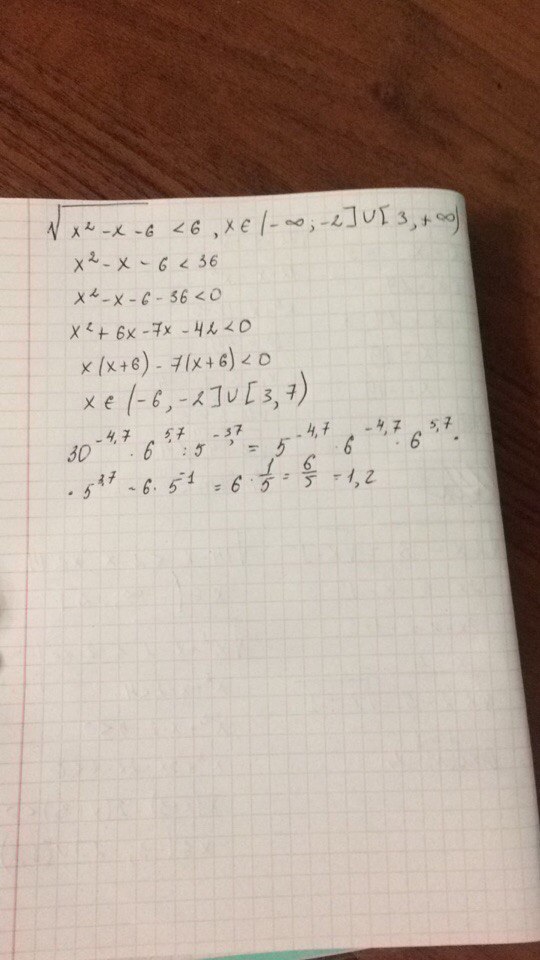 √x² - x - 6 < 6, x ∈ (-∞; -2] ∪ [3, +∞)
x² - x - 6 < 36
x² - x - 6 - 36 < 0
x² + 6x - 7x - 42 < 0
x(x+6) - 7(x+6) < 0
x ∈ (-6, -2] ∪ [3, 7)
30^-4,7 · 6^5,7 : 5^-3,7 = 5^-4,7 · 6^-4,7 · 6^5,7 ·
· 5^3,7 = 6 · 5^-1 = 6 · 1/5 = 6/5 = 1,2